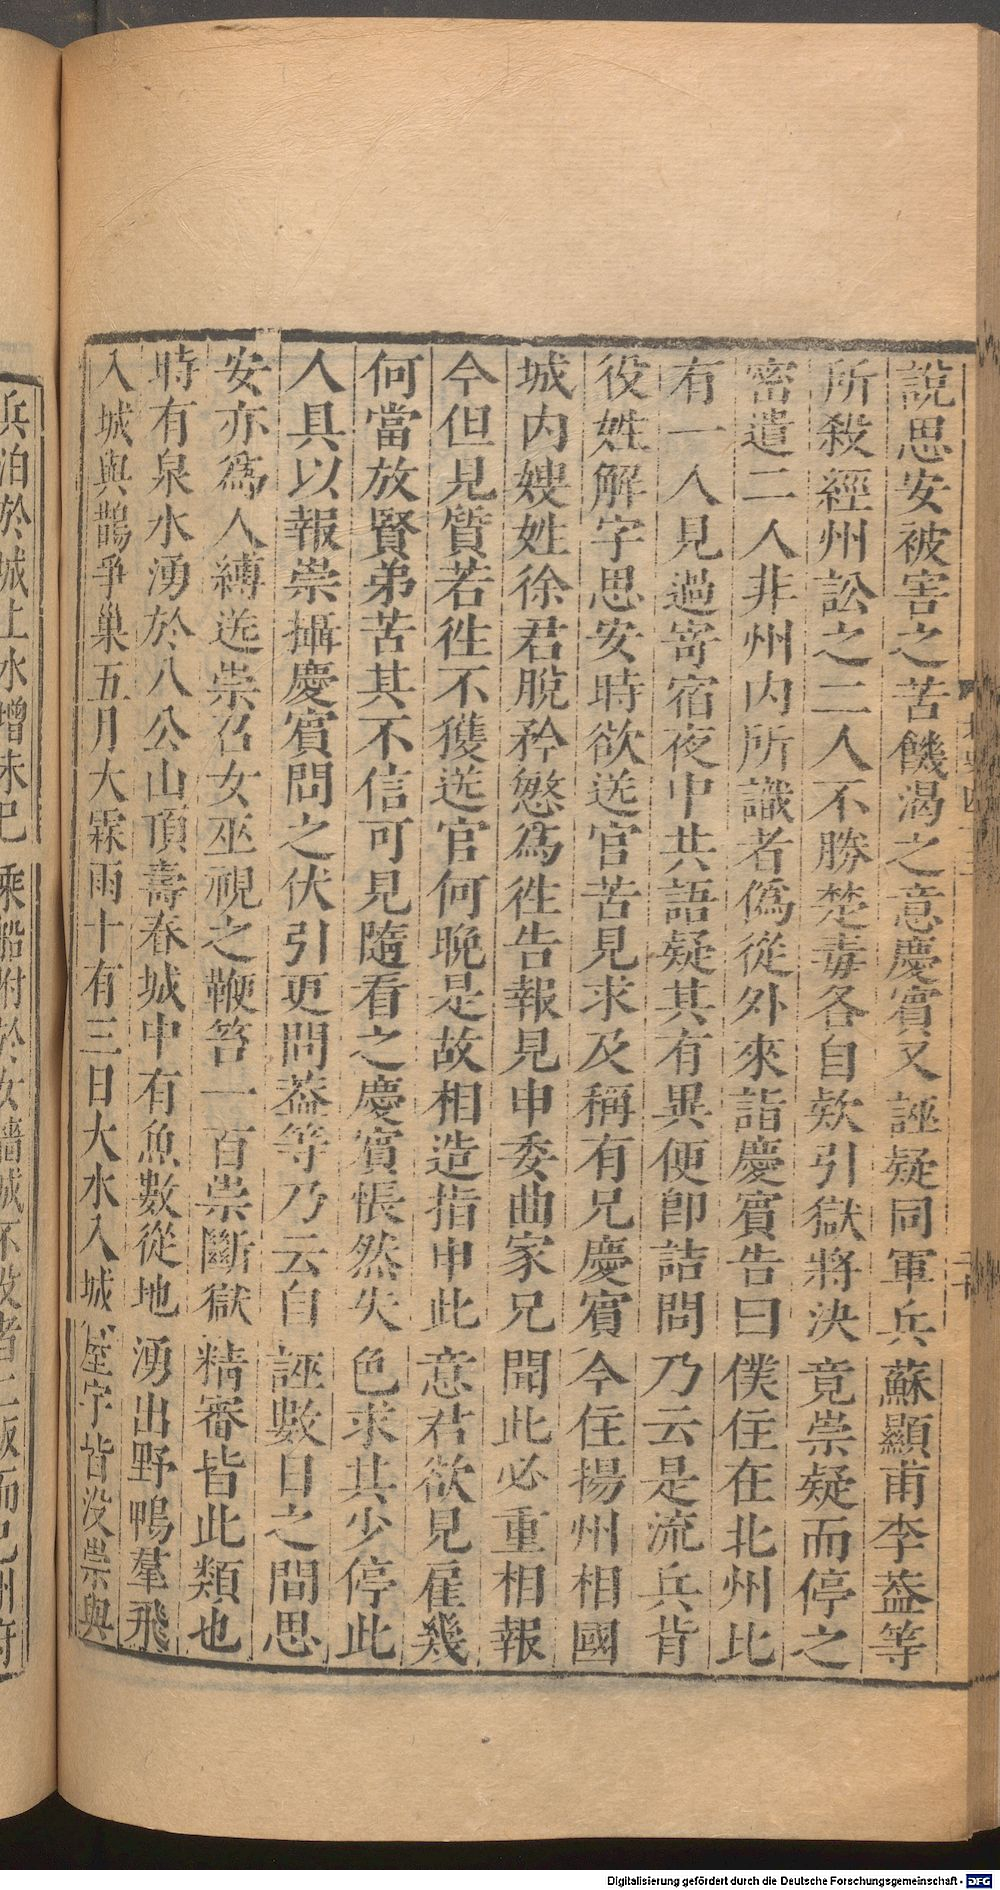 說思安被害之苦饑渴之意慶賓又誣疑同軍兵蘇顯甫李葢等
所殺經州訟之二人不勝楚毒各自欵引獄將決竟崇疑而停之
密遣二人非州内所識者僞從外來詣慶賓告曰僕住在北州比
有一人見過寄宿夜中共語疑其有異便卽詰問乃云是流兵背
役姓解字思安時欲送官苦見求及稱有兄慶賓今住揚州相國
城内嫂姓徐君脫矜愍為徃告報見申委曲家兄聞此必重相報
今但見質若徃不獲送官何晚是故相造指申此意君欲見雇幾
何當放賢弟苦其不信可見隨看之慶賓悵然失色求其少停此
人具以報崇攝慶賓問之伏引更問葢等乃云自誣數日之間思
安亦為人縛送崇召女巫視之鞭笞一百崇斷獄精審皆此類也
時有泉水湧於八公山頂壽春城中有魚數從地湧出野鴨羣飛
入城與鵲爭巢五月大霖雨十有三日大水入城屋宇皆沒崇與
兵泊於城上水增未已乘船附於女牆城不沒者二版而已州府
Digitalisierung gefördert durch die Deutsche Forschungsgemeinschaft - DFG